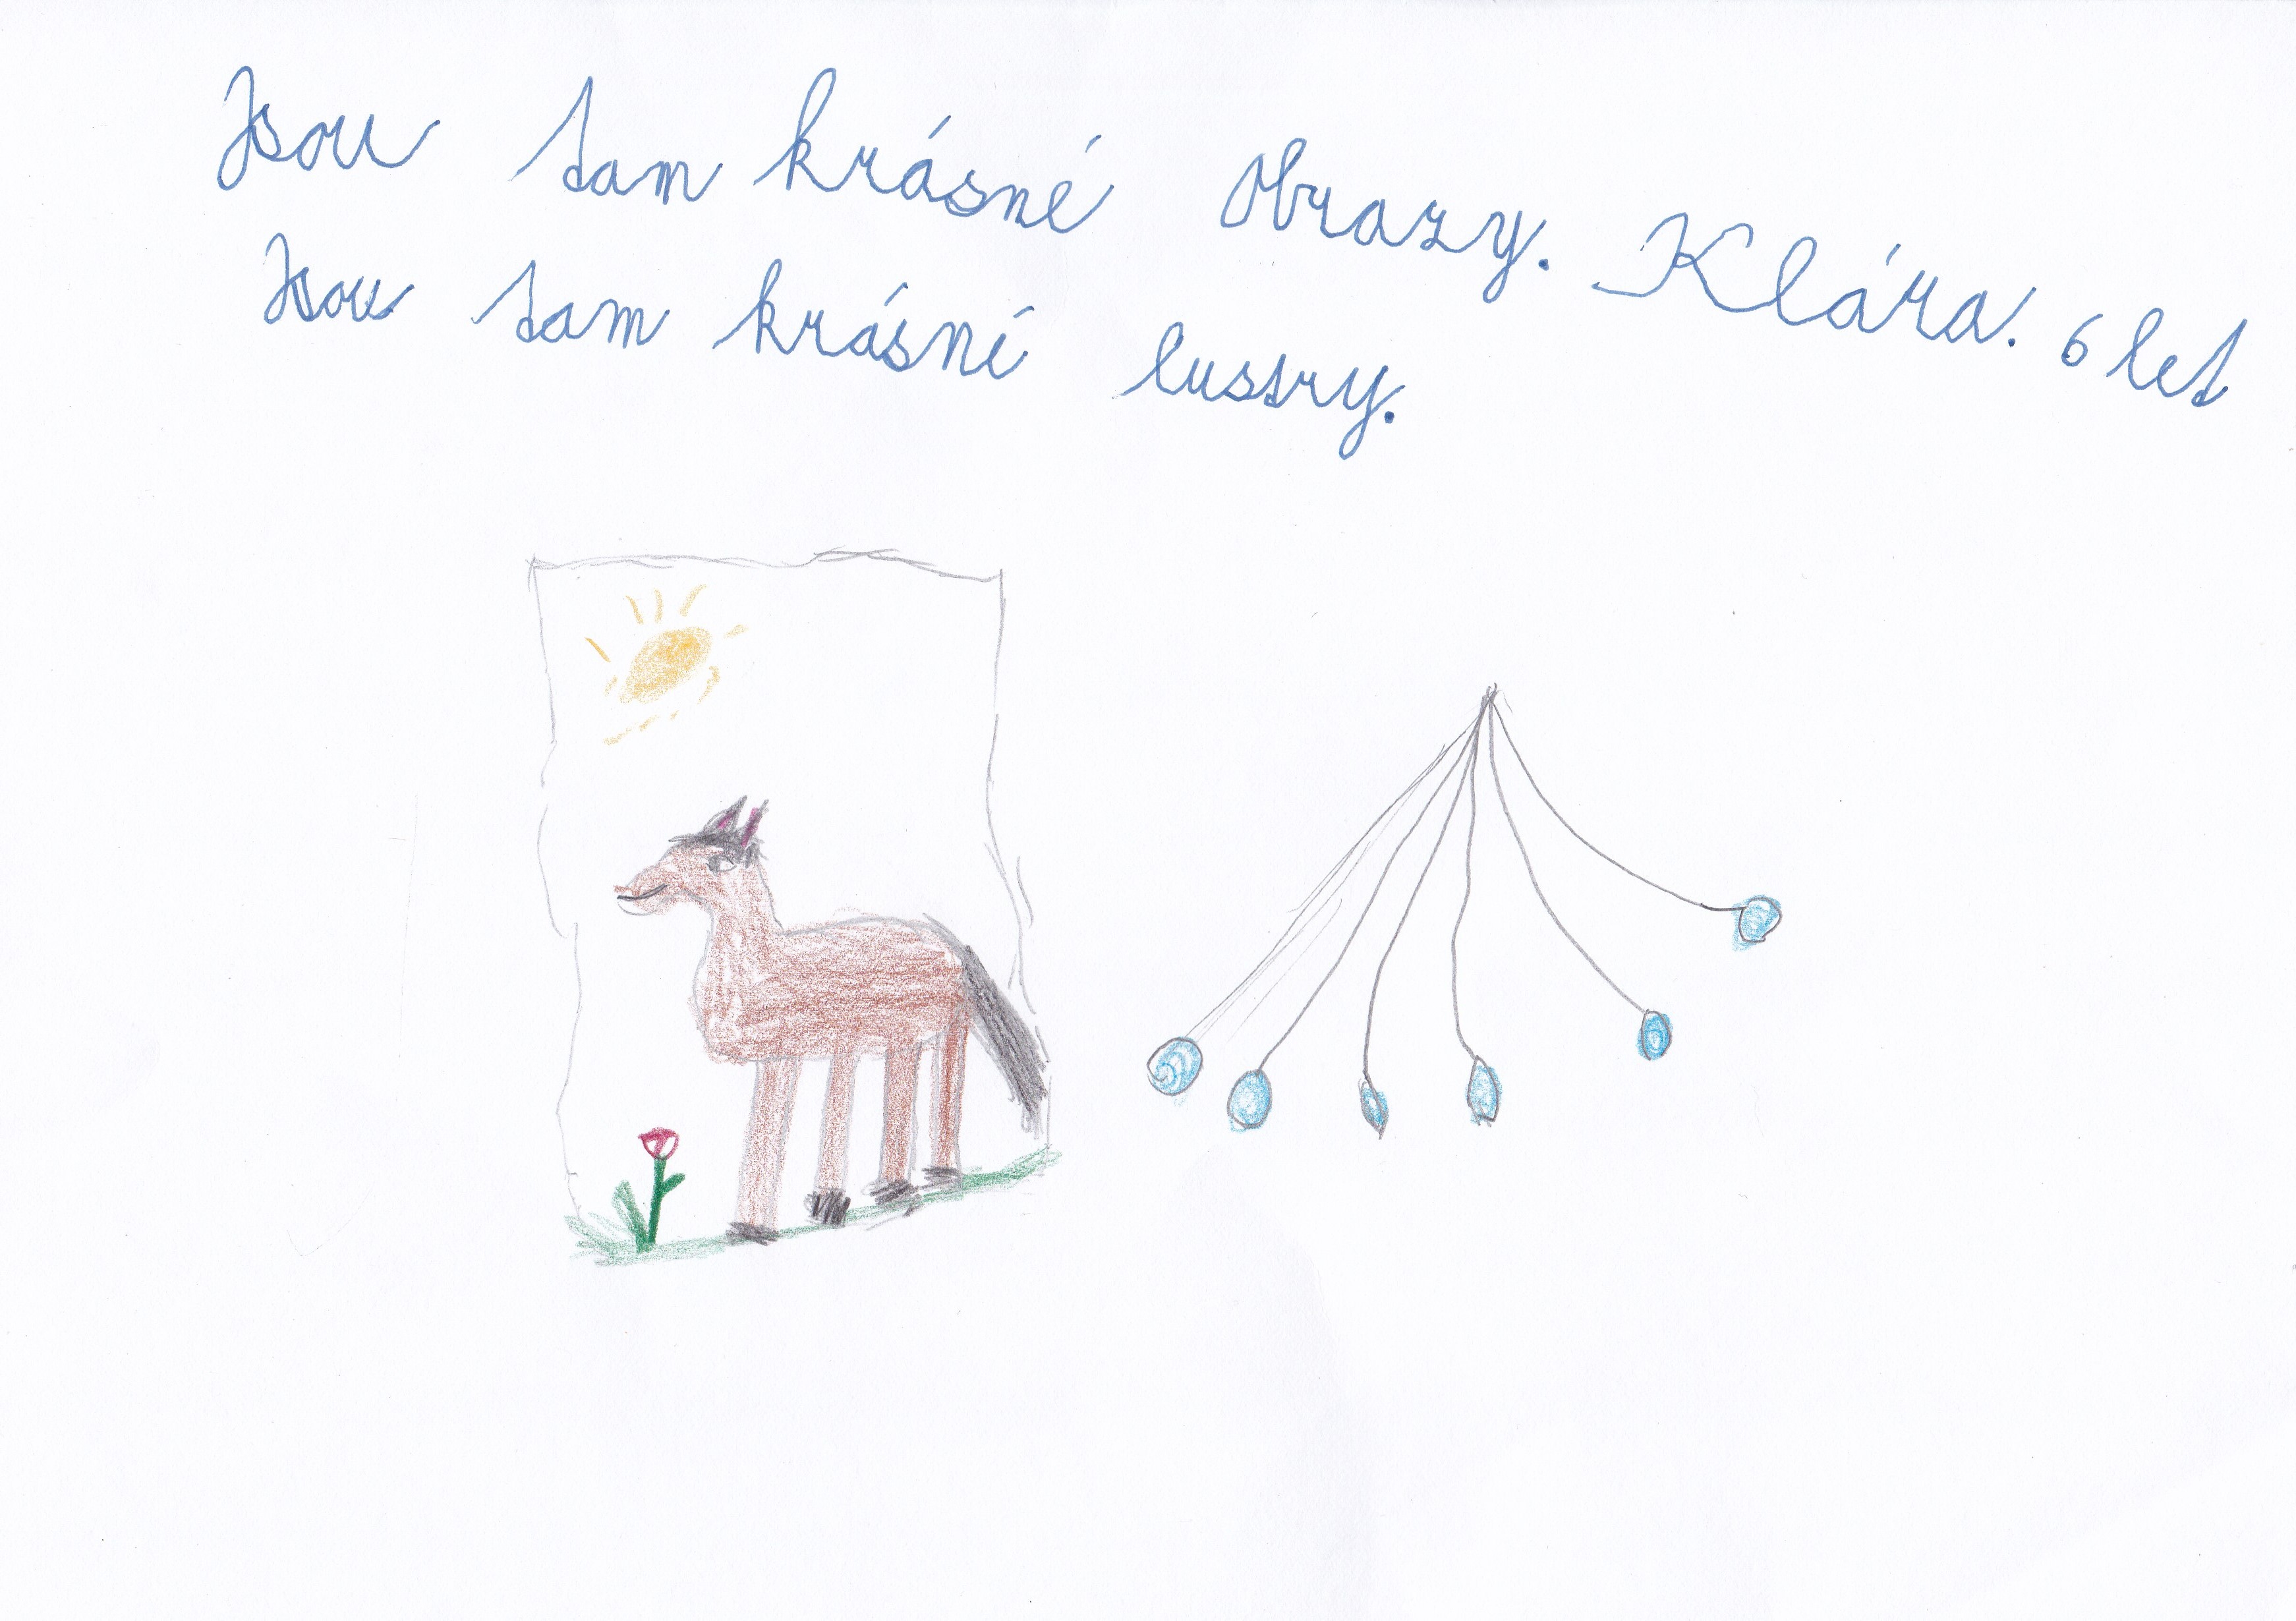 Jsou tam krásné obrazy. Klára. 6 let
Jsou tam krásní lustry.